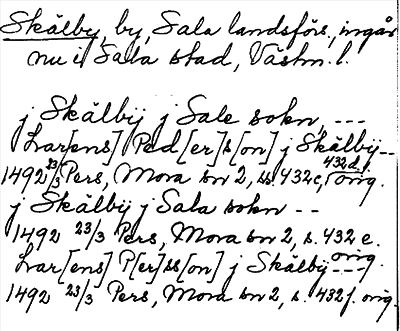 Skälby, by, Sala landsförs., ingår
nu i Sala stad, Västm. l.
j Skälbij j Sale sokn, ---
Lar[ens] Ped[er]s[on] j Skälby --
1492 23/3 Pers, Mora sn 2, ss. 432c, 432d. orig.
j Skälbij j Sala sokn --
1492 23/3 Pers, Mora sn 2, s. 432 e. orig.
Lar[ens] P[er]ss[on] j Skälby ---
1492 23/3 Pers, Mora sn 2, s. 432 f. orig.